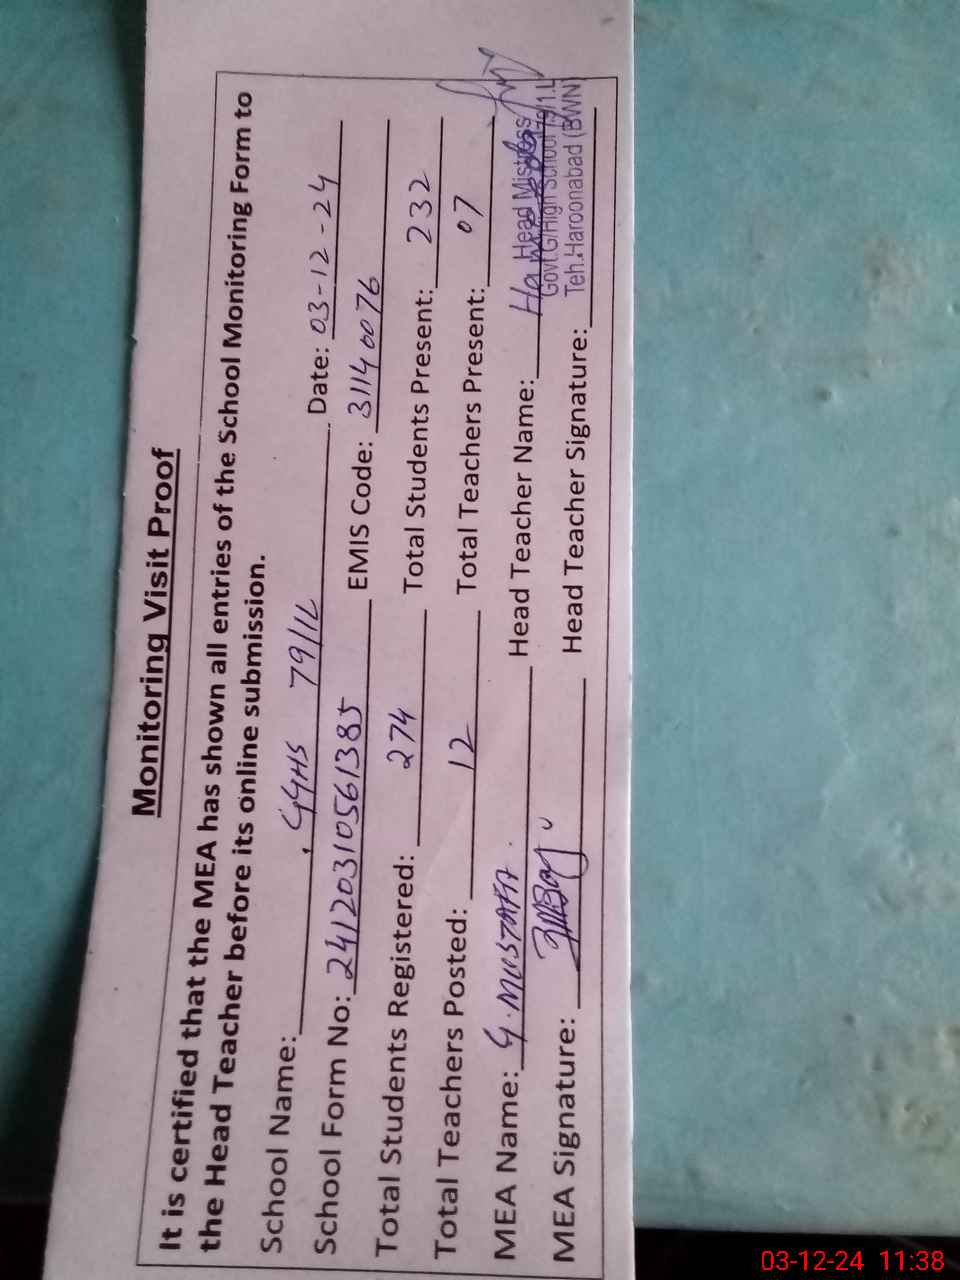 Monitoring Visit Proof
It is certified that the MEA has shown all entries of the School Monitoring Form to
the Head Teacher before its online submission.
School Name: GGHS 79/1L Date: 03-12-24
School Form No: 24120310561385 EMIS Code: 31140076
Total Students Registered: 274 Total Students Present: 232
Total Teachers Posted: 12 Total Teachers Present: 07
MEA Name: G. MUSTAFA Head Teacher Name:
Head Mistress
Govt.G/High School 79/1.L
Teh.Haroonabad (BWN)
MEA Signature: Head Teacher Signature:
03-12-24 11:38